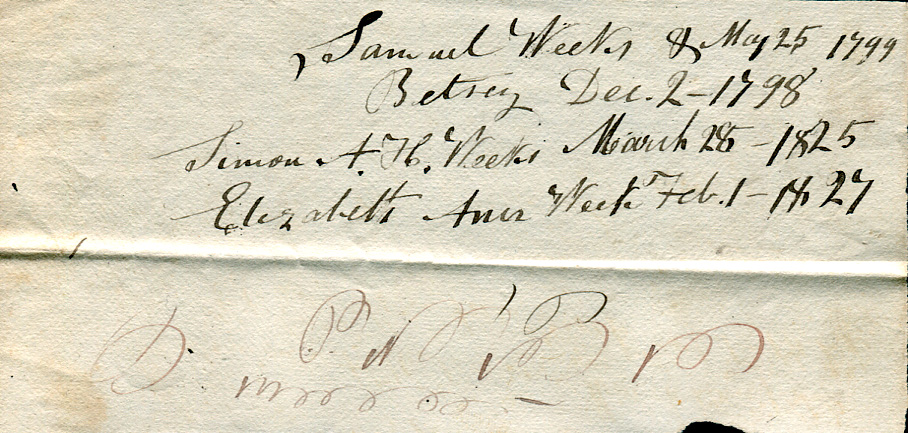 Samuel Weeks & May 25 1799
Betsey Dec. 2 - 1798
Simon A. H. Weeks March 28 - 1825
Elizabeth Ann Weeks Feb. 1 - 1827